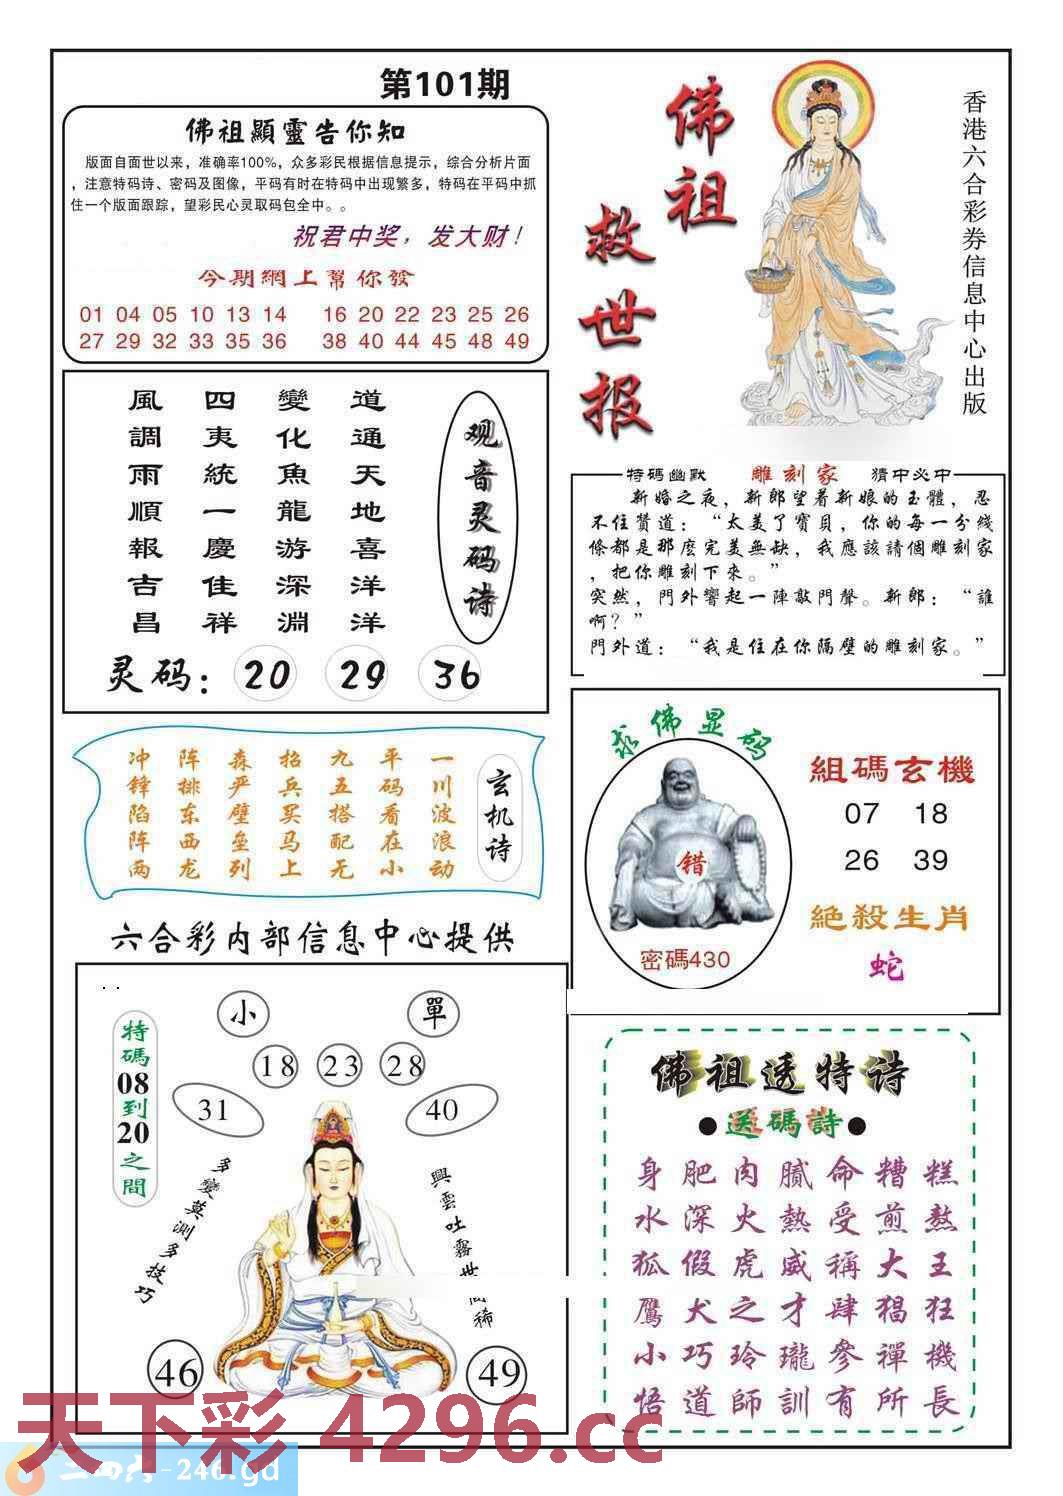 第101期
佛祖顯靈告你知
版面自面世以来，准确率100%，众多彩民根据信息提示，综合分析片面
，注意特码诗、密码及图像，平码有时在特码中出现繁多，特码在平码中抓
住一个版面跟踪，望彩民心灵取码包全中。。
祝君中奖，发大财！
今期網上幫你發
01 04 05 10 13 14 16 20 22 23 25 26
27 29 32 33 35 36 38 40 44 45 48 49
佛祖
救世报
香港六合彩券信息中心出版
观音灵码诗
道通天地喜洋洋
變化魚龍游深淵
四夷統一慶佳祥
風調雨順報吉昌
灵码：20 29 36
特碼幽默 雕刻家 猜中必中
新婚之夜，新郎望着新娘的玉體，忍
不住贊道：“太美了寶貝，你的每一分綫
條都是那麽完美無缺，我應該請個雕刻家
，把你雕刻下來。”
突然，門外響起一陣敲門聲。新郎：“誰
啊？”
門外道：“我是住在你隔壁的雕刻家。”
玄机诗
一川波浪动
平码看在小
九五搭配无
招兵买马上
森严壁垒列
阵排东西龙
冲锋陷阵两
求佛显码
错
密碼430
組碼玄機
07 18
26 39
絕殺生肖
蛇
六合彩内部信息中心提供
小 單
18 23 28
31 40
特碼08到20之間
多變莫測多技巧
興雲吐霧世
稀
46 49
佛祖透特诗
●送碼詩●
身肥肉膩命糟糕
水深火熱受煎熬
狐假虎威稱大王
鷹犬之才肆猖狂
小巧玲瓏參禪機
悟道師訓有所長
天下彩 4296.cc
二四六-246.gd